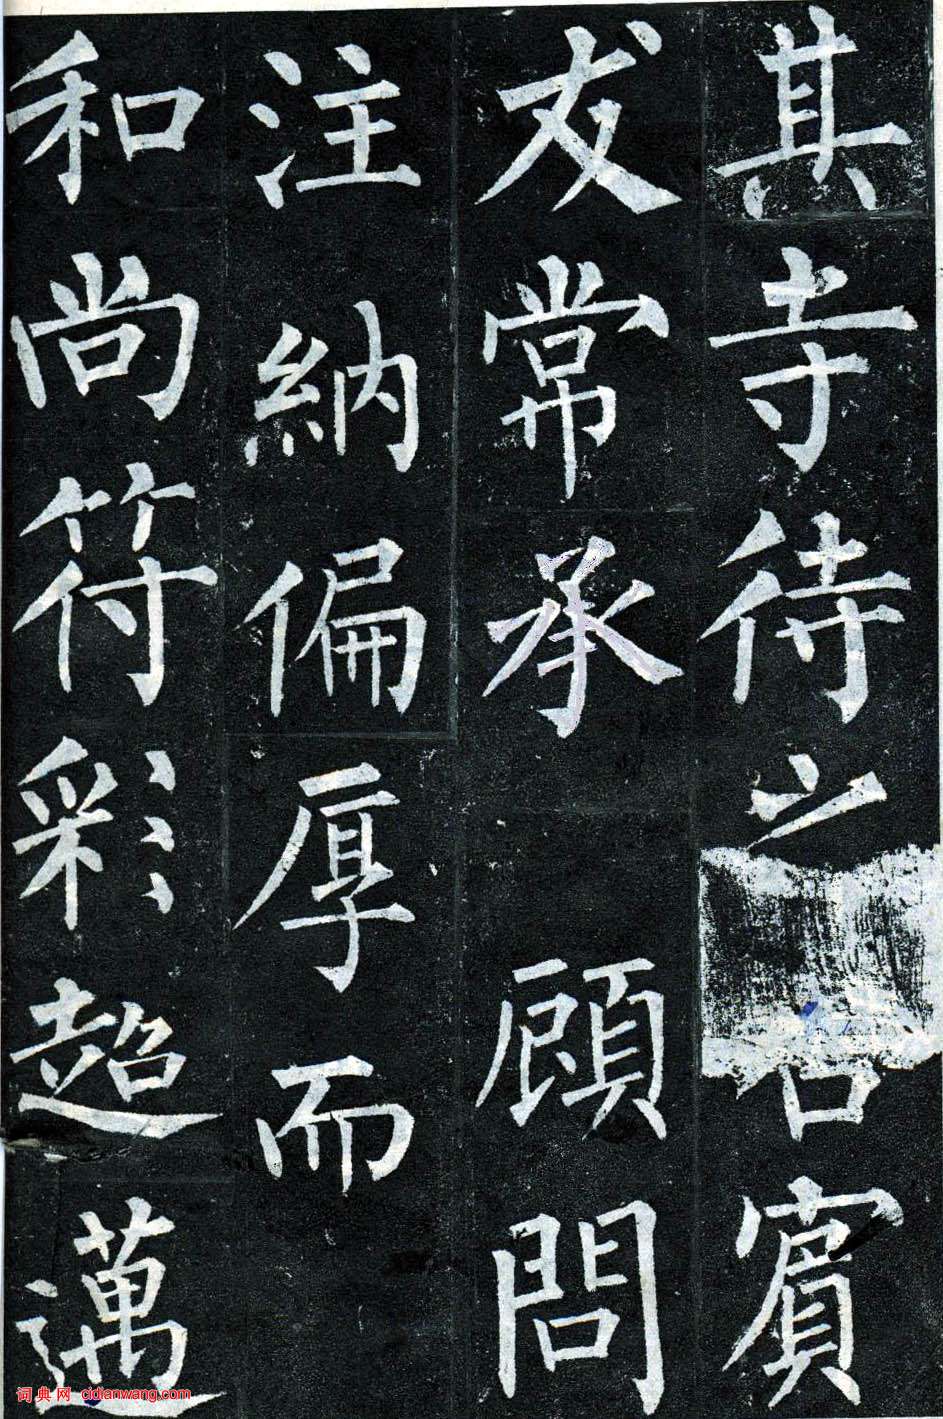 其寺待之賓
友常承顧問
注納偏厚而
和尚符彩超邁
词典网 cidianwang.com